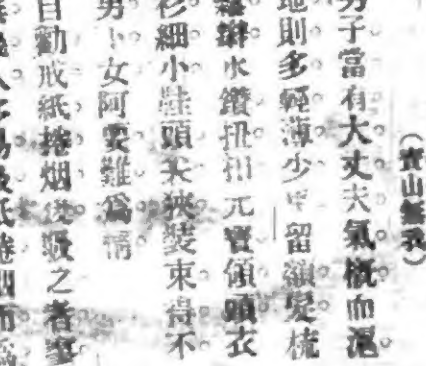 （寶山
男子當有大丈夫氣概而滬
地則多輕薄少年留額髮梳
辮水鑽扭扣元寶領頭衣
衫細小鞋頭尖狹裝束得不
男卜女阿要難爲情
自勸戒紙捲烟後吸之者
人